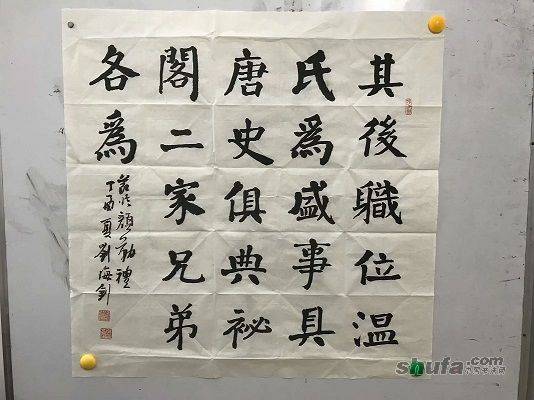 其後職位温
氏為盛事具
唐史俱典祕
閣二家兄弟
各為
節臨顏勤禮
丁酉夏劉海劍
shufa.com